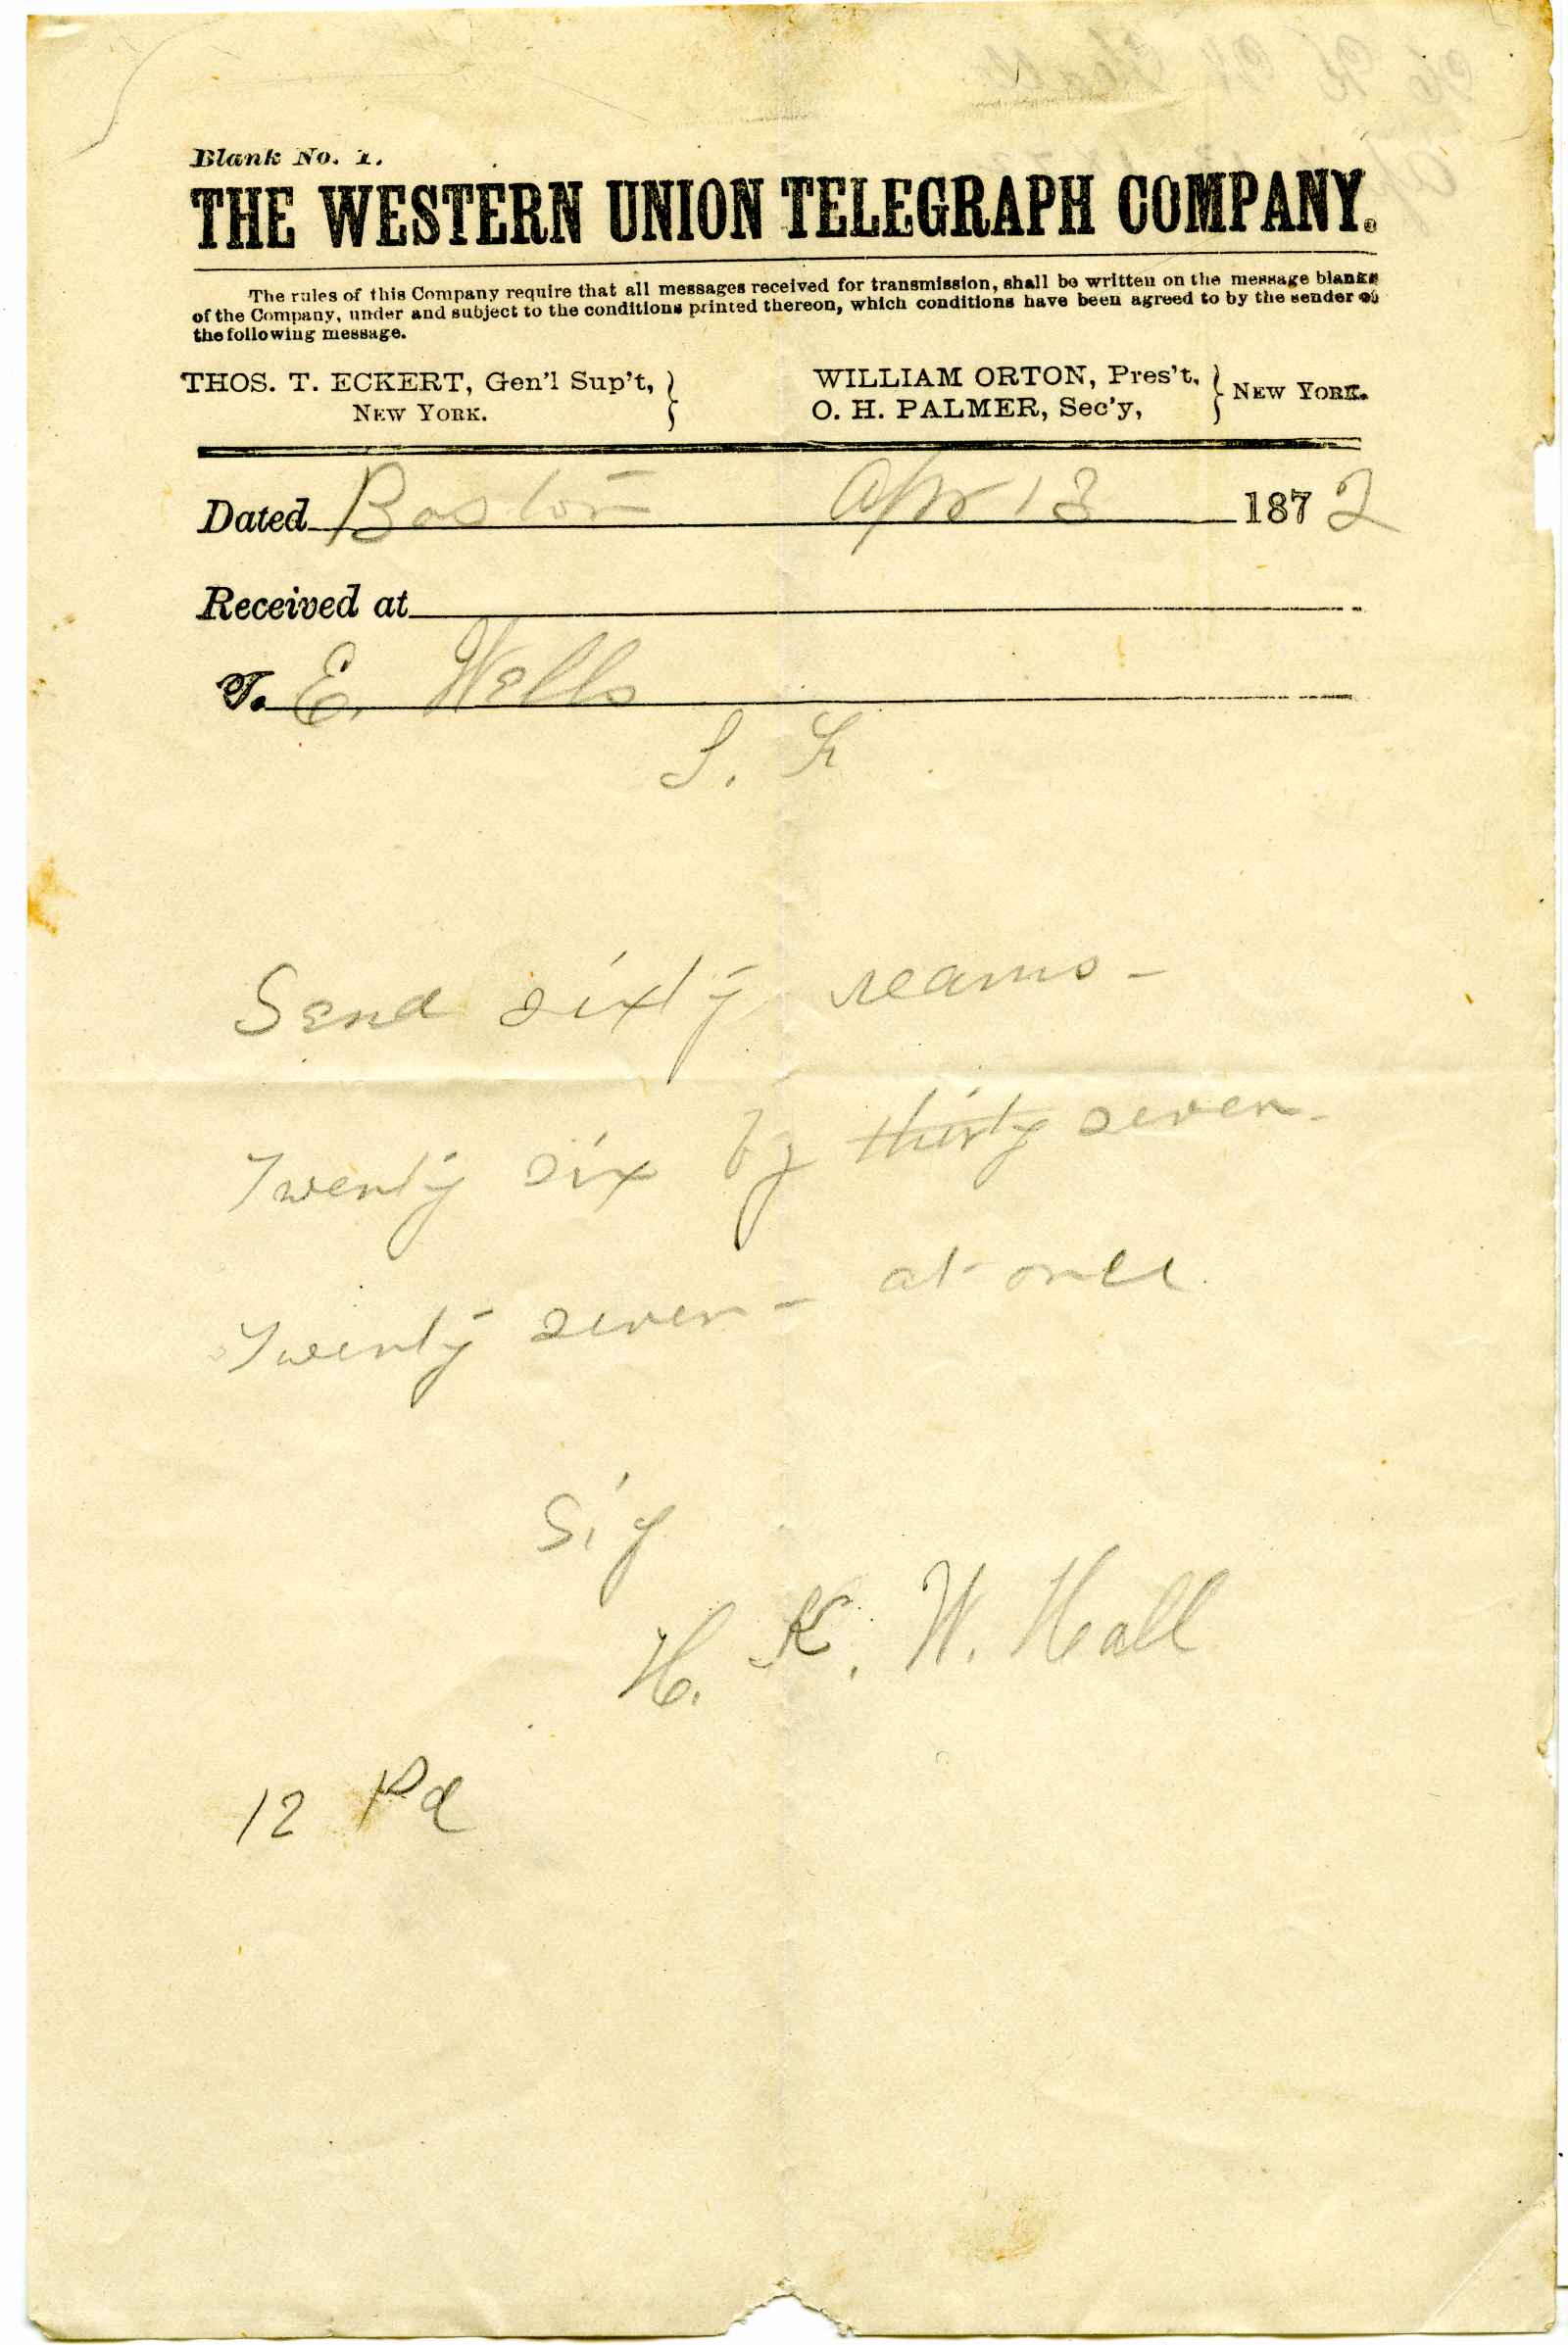 Blank No. 1.
THE WESTERN UNION TELEGRAPH COMPANY.
The rules of this Company require that all messages received for transmission, shall be written on the message blanks
of the Company, under and subject to the conditions printed thereon, which conditions have been agreed to by the sender of
the following message.
THOS. T. ECKERT, Gen'l Sup't,
NEW YORK.
WILLIAM ORTON, Pres't,
O. H. PALMER, Sec'y,
NEW YORK.
Dated Boston Apr 13 1872
Received at
To E. Wells
S. F.
Send sixty reams -
Twenty six by thirty seven -
Twenty seven - at once
Sig
H. K. W. Hall
12 Pd